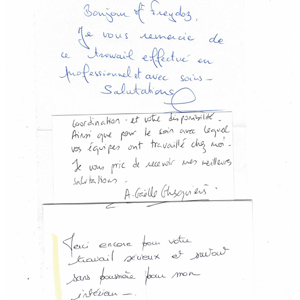 Bonjour Mr Freydoz,
Je vous remercie de
ce travail effectué en
professionnel et avec soins -
Salutations
coordination - et votre disponibilité.
Ainsi que pour le soin avec lequel
vos équipes ont travaillé chez moi.
Je vous prie de recevoir mes meilleures
salutations.
A. Gaëlle
Merci encore pour votre
travail sérieux et surtout
sans poussière pour mon
intérieur -